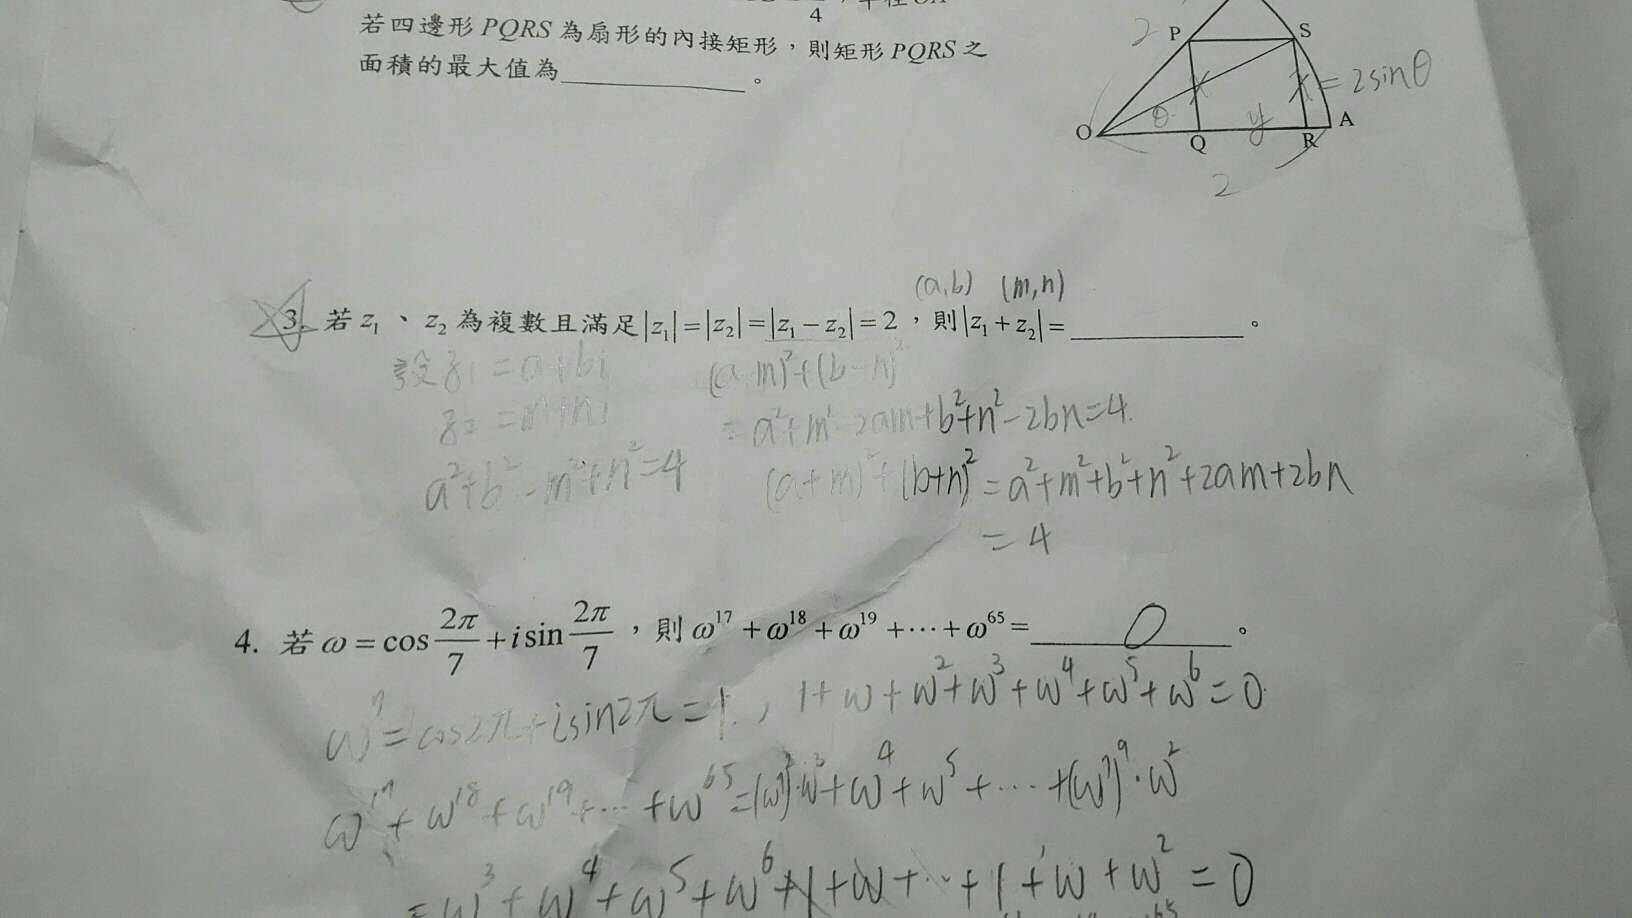 4
若四邊形 PQRS 為扇形的內接矩形，則矩形 PQRS 之
面積的最大值為________。
2 P S
x x = 2sinθ
O θ Q y R A
2
(a,b) (m,n)
3. 若 z₁、z₂ 為複數且滿足|z₁|=|z₂|=|z₁−z₂|=2，則|z₁+z₂|=________。
設z₁=a+bi (a-m)²+(b-n)²
z₂=m+ni =a²+m²-2am+b²+n²-2bn=4.
a²+b²=m²+n²=4 (a+m)²+(b+n)²=a²+m²+b²+n²+2am+2bn
=4
4. 若 ω=cos 2π/7 + i sin 2π/7，則 ω¹⁷+ω¹⁸+ω¹⁹+⋯+ω⁶⁵= 0 。
ω⁷=cos2π+isin2π=1., 1+ω+ω²+ω³+ω⁴+ω⁵+ω⁶=0.
ω¹⁷+ω¹⁸+ω¹⁹+⋯+ω⁶⁵=(ω⁷)²·ω³+ω⁴+ω⁵+⋯+(ω⁷)⁹·ω²
=ω³+ω⁴+ω⁵+ω⁶+1+ω+⋯+1+ω+ω²=0